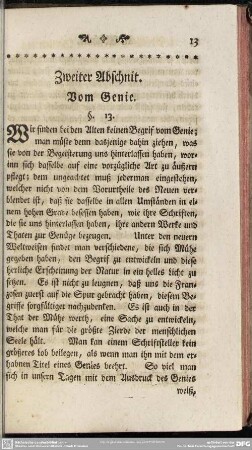 13
Zweiter Abschnit.
Vom Genie.
§. 13.
Wir finden bei den Alten keinen Begrif vom Genie;
man müste denn dasjenige dahin ziehen, was
sie von der Begeisterung uns hinterlassen haben, wor-
inn sich dasselbe auf eine vorzügliche Art zu äußern
pflegt; dem ungeachtet muß jederman eingestehen,
welcher nicht von dem Vorurtheile des Neuen ver-
blendet ist, daß sie dasselbe in allen Umständen in ei-
nem hohen Grade besessen haben, wie ihre Schriften,
die sie uns hinterlassen haben, ihre andern Werke und
Thaten zur Genüge bezeugen. Unter den neuern
Weltweisen findet man verschiedene, die sich Mühe
gegeben haben, den Begrif zu entwickeln und diese
herliche Erscheinung der Natur in ein helles Licht zu
setzen. Es ist nicht zu leugnen, daß uns die Fran-
zosen zuerst auf die Spur gebracht haben, diesem Be-
griffe sorgfältiger nachzudenken. Es ist auch in der
That der Mühe werth, eine Sache zu entwickeln,
welche man für die größte Zierde der menschlichen
Seele hält. Man kan einem Schriftsteller kein
größeres Lob beilegen, als wenn man ihn mit dem er-
habnen Titel eines Genies beehrt. So viel man
sich in unsern Tagen mit dem Ausdruck des Genies
weiß,